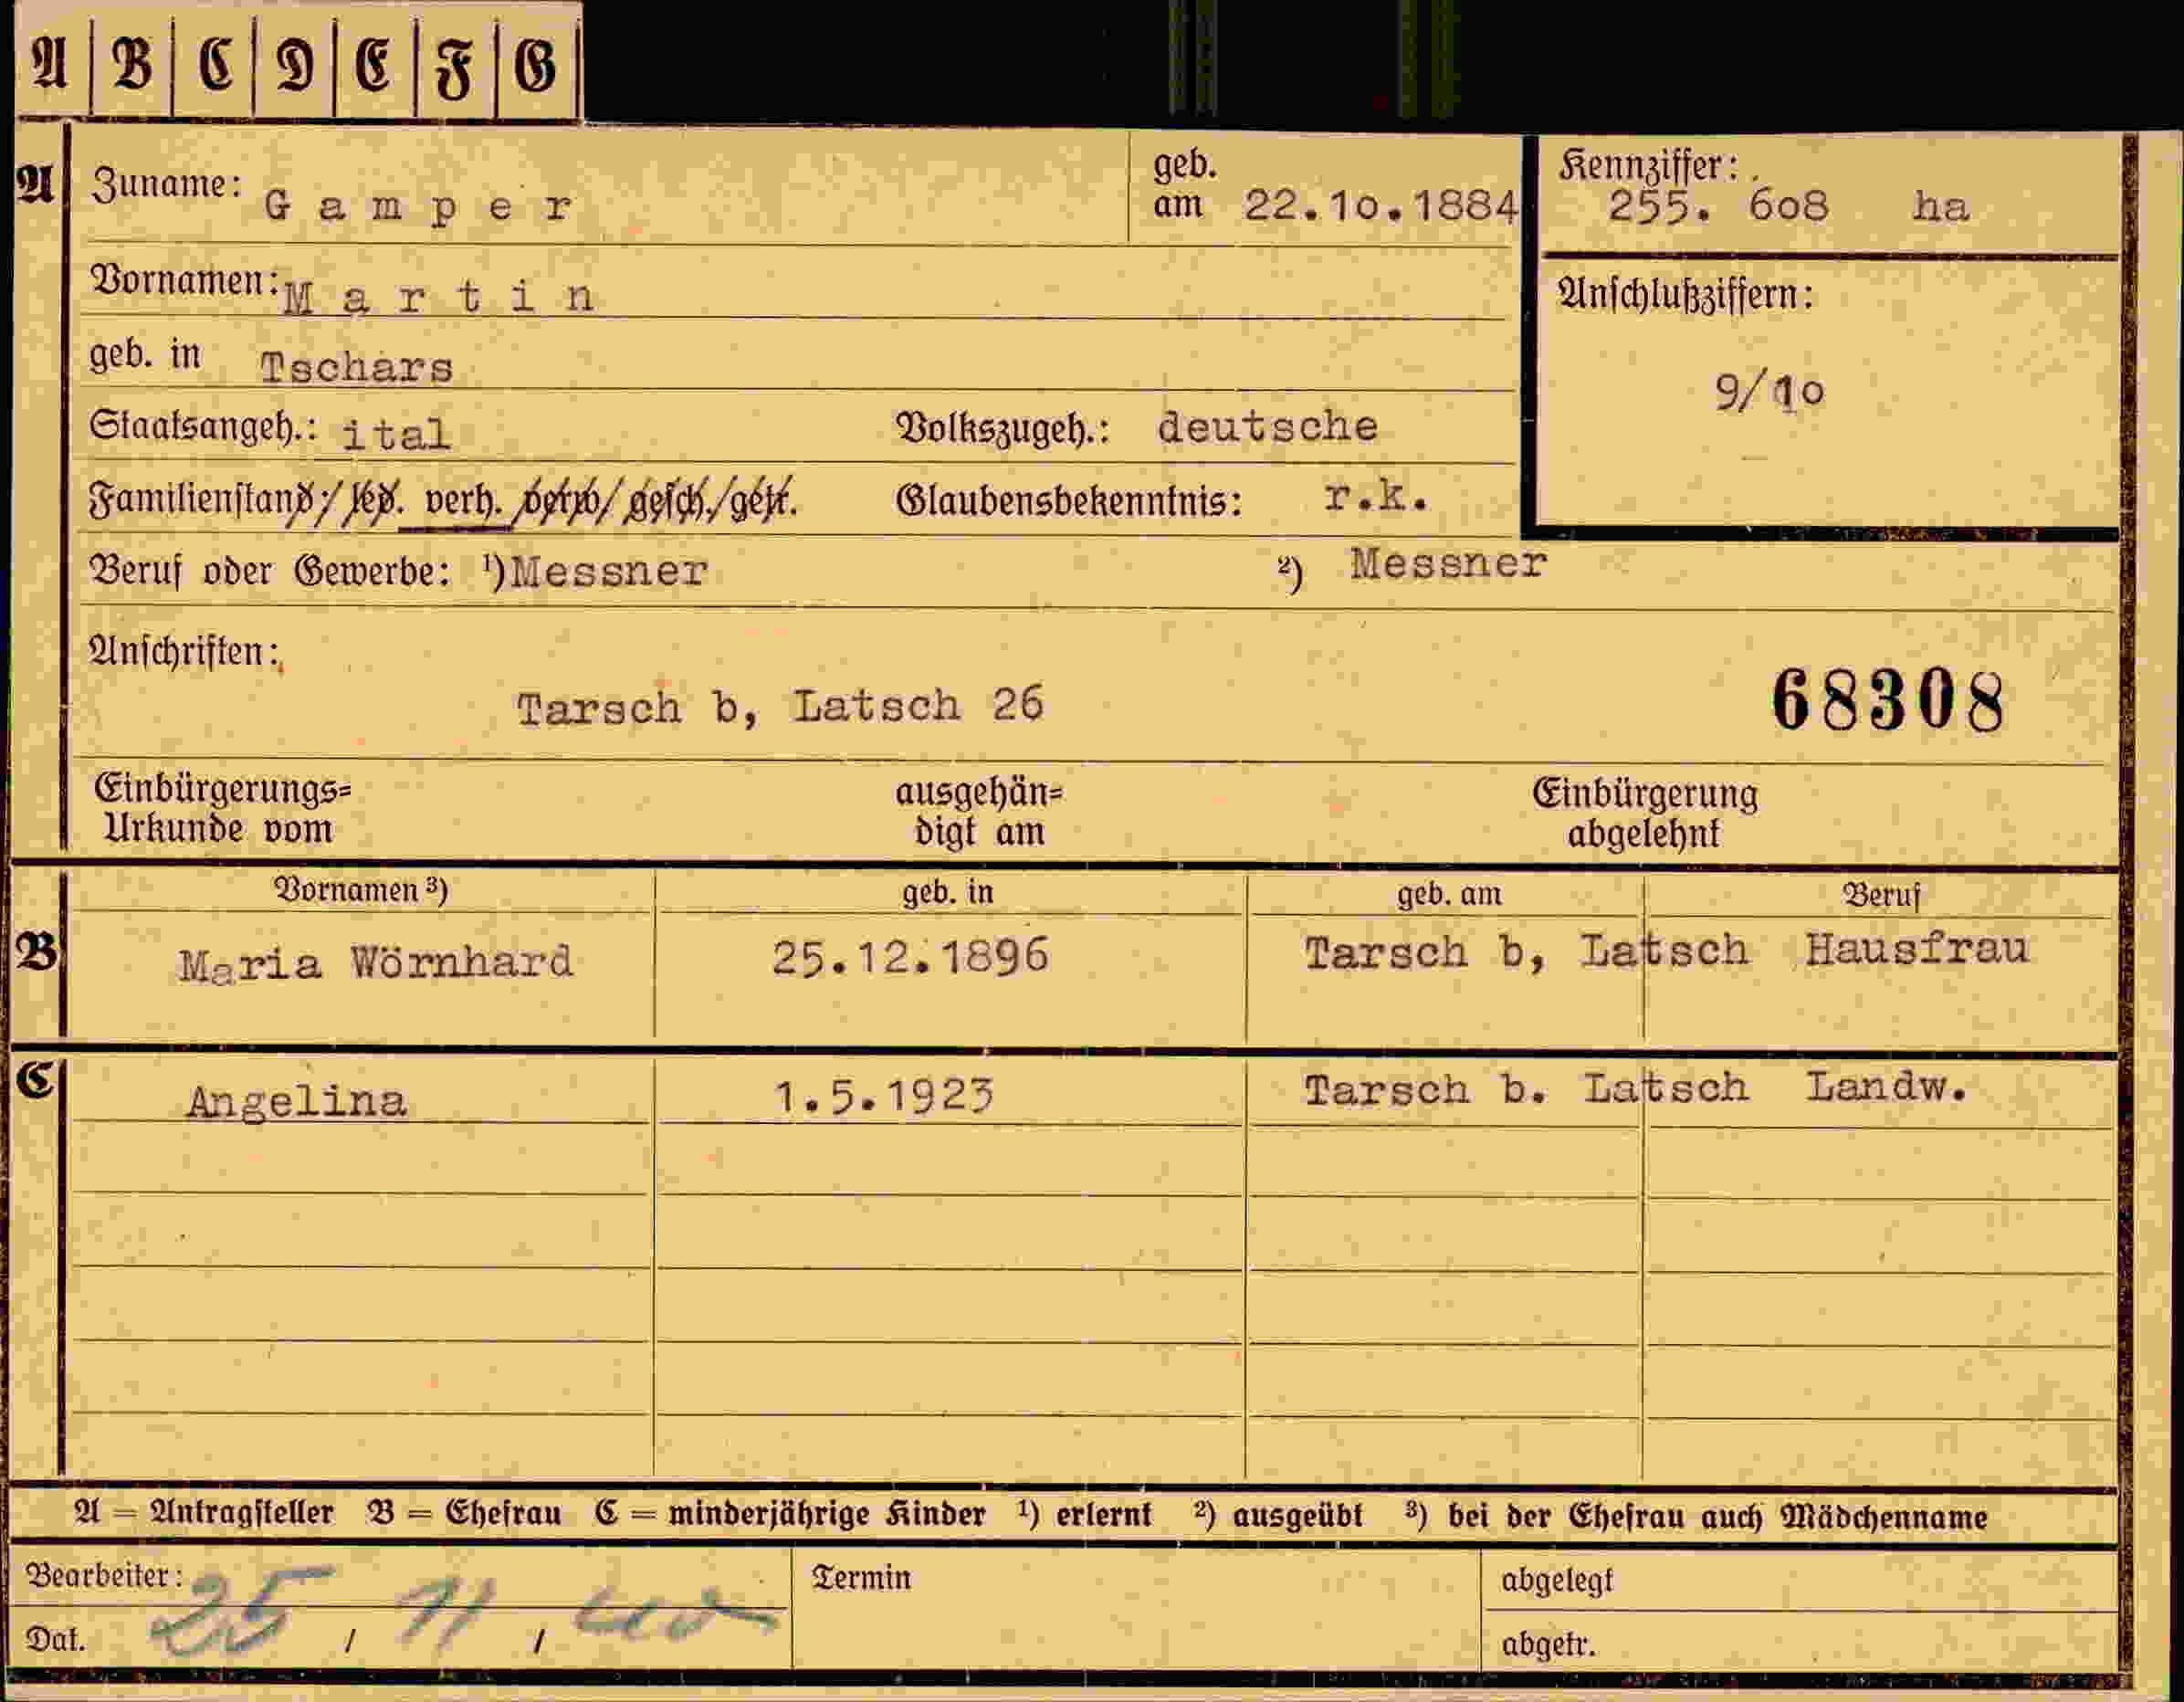 A B C D E F G
A Zuname: Gamper geb. am 22.10.1884 Kennziffer: 255. 608 ha
Vornamen: Martin Anschlußziffern:
geb. in Tschars 9/10
Staatsangeh.: ital Volkszugeh.: deutsche
Familienstand: / led. verh. verw / gesch. / getr. Glaubensbekenntnis: r.k.
Beruf oder Gewerbe: 1) Messner 2) Messner
Anschriften:
Tarsch b, Latsch 26 68308
Einbürgerungs= ausgehän= Einbürgerung
Urkunde vom digt am abgelehnt
Vornamen 3) geb. in geb. am Beruf
B Maria Wörnhard 25.12.1896 Tarsch b, Latsch Hausfrau
C Angelina 1.5.1923 Tarsch b. Latsch Landw.
A = Antragsteller B = Ehefrau C = minderjährige Kinder 1) erlernt 2) ausgeübt 3) bei der Ehefrau auch Mädchenname
Bearbeiter: Termin abgelegt
Dat. 25 / 11 / abgetr.